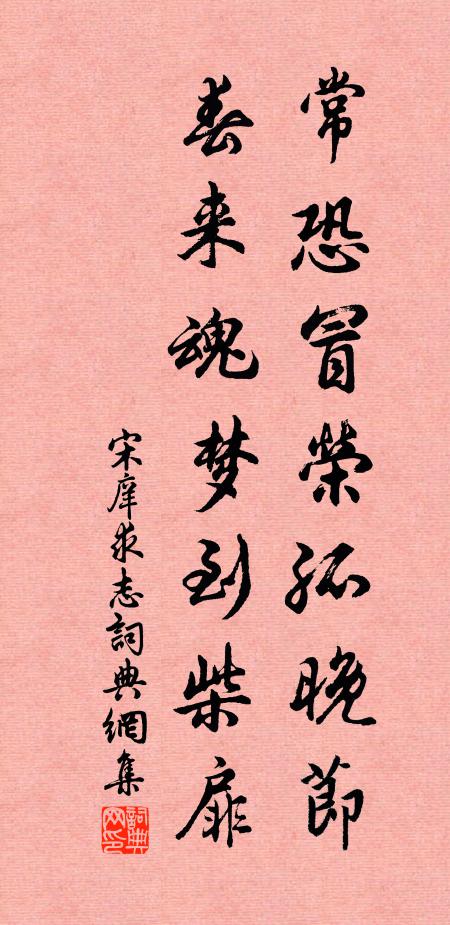 常恐冒榮孤晚節
春来魂梦到柴扉
宋庠求志詞典網集
詞典网印